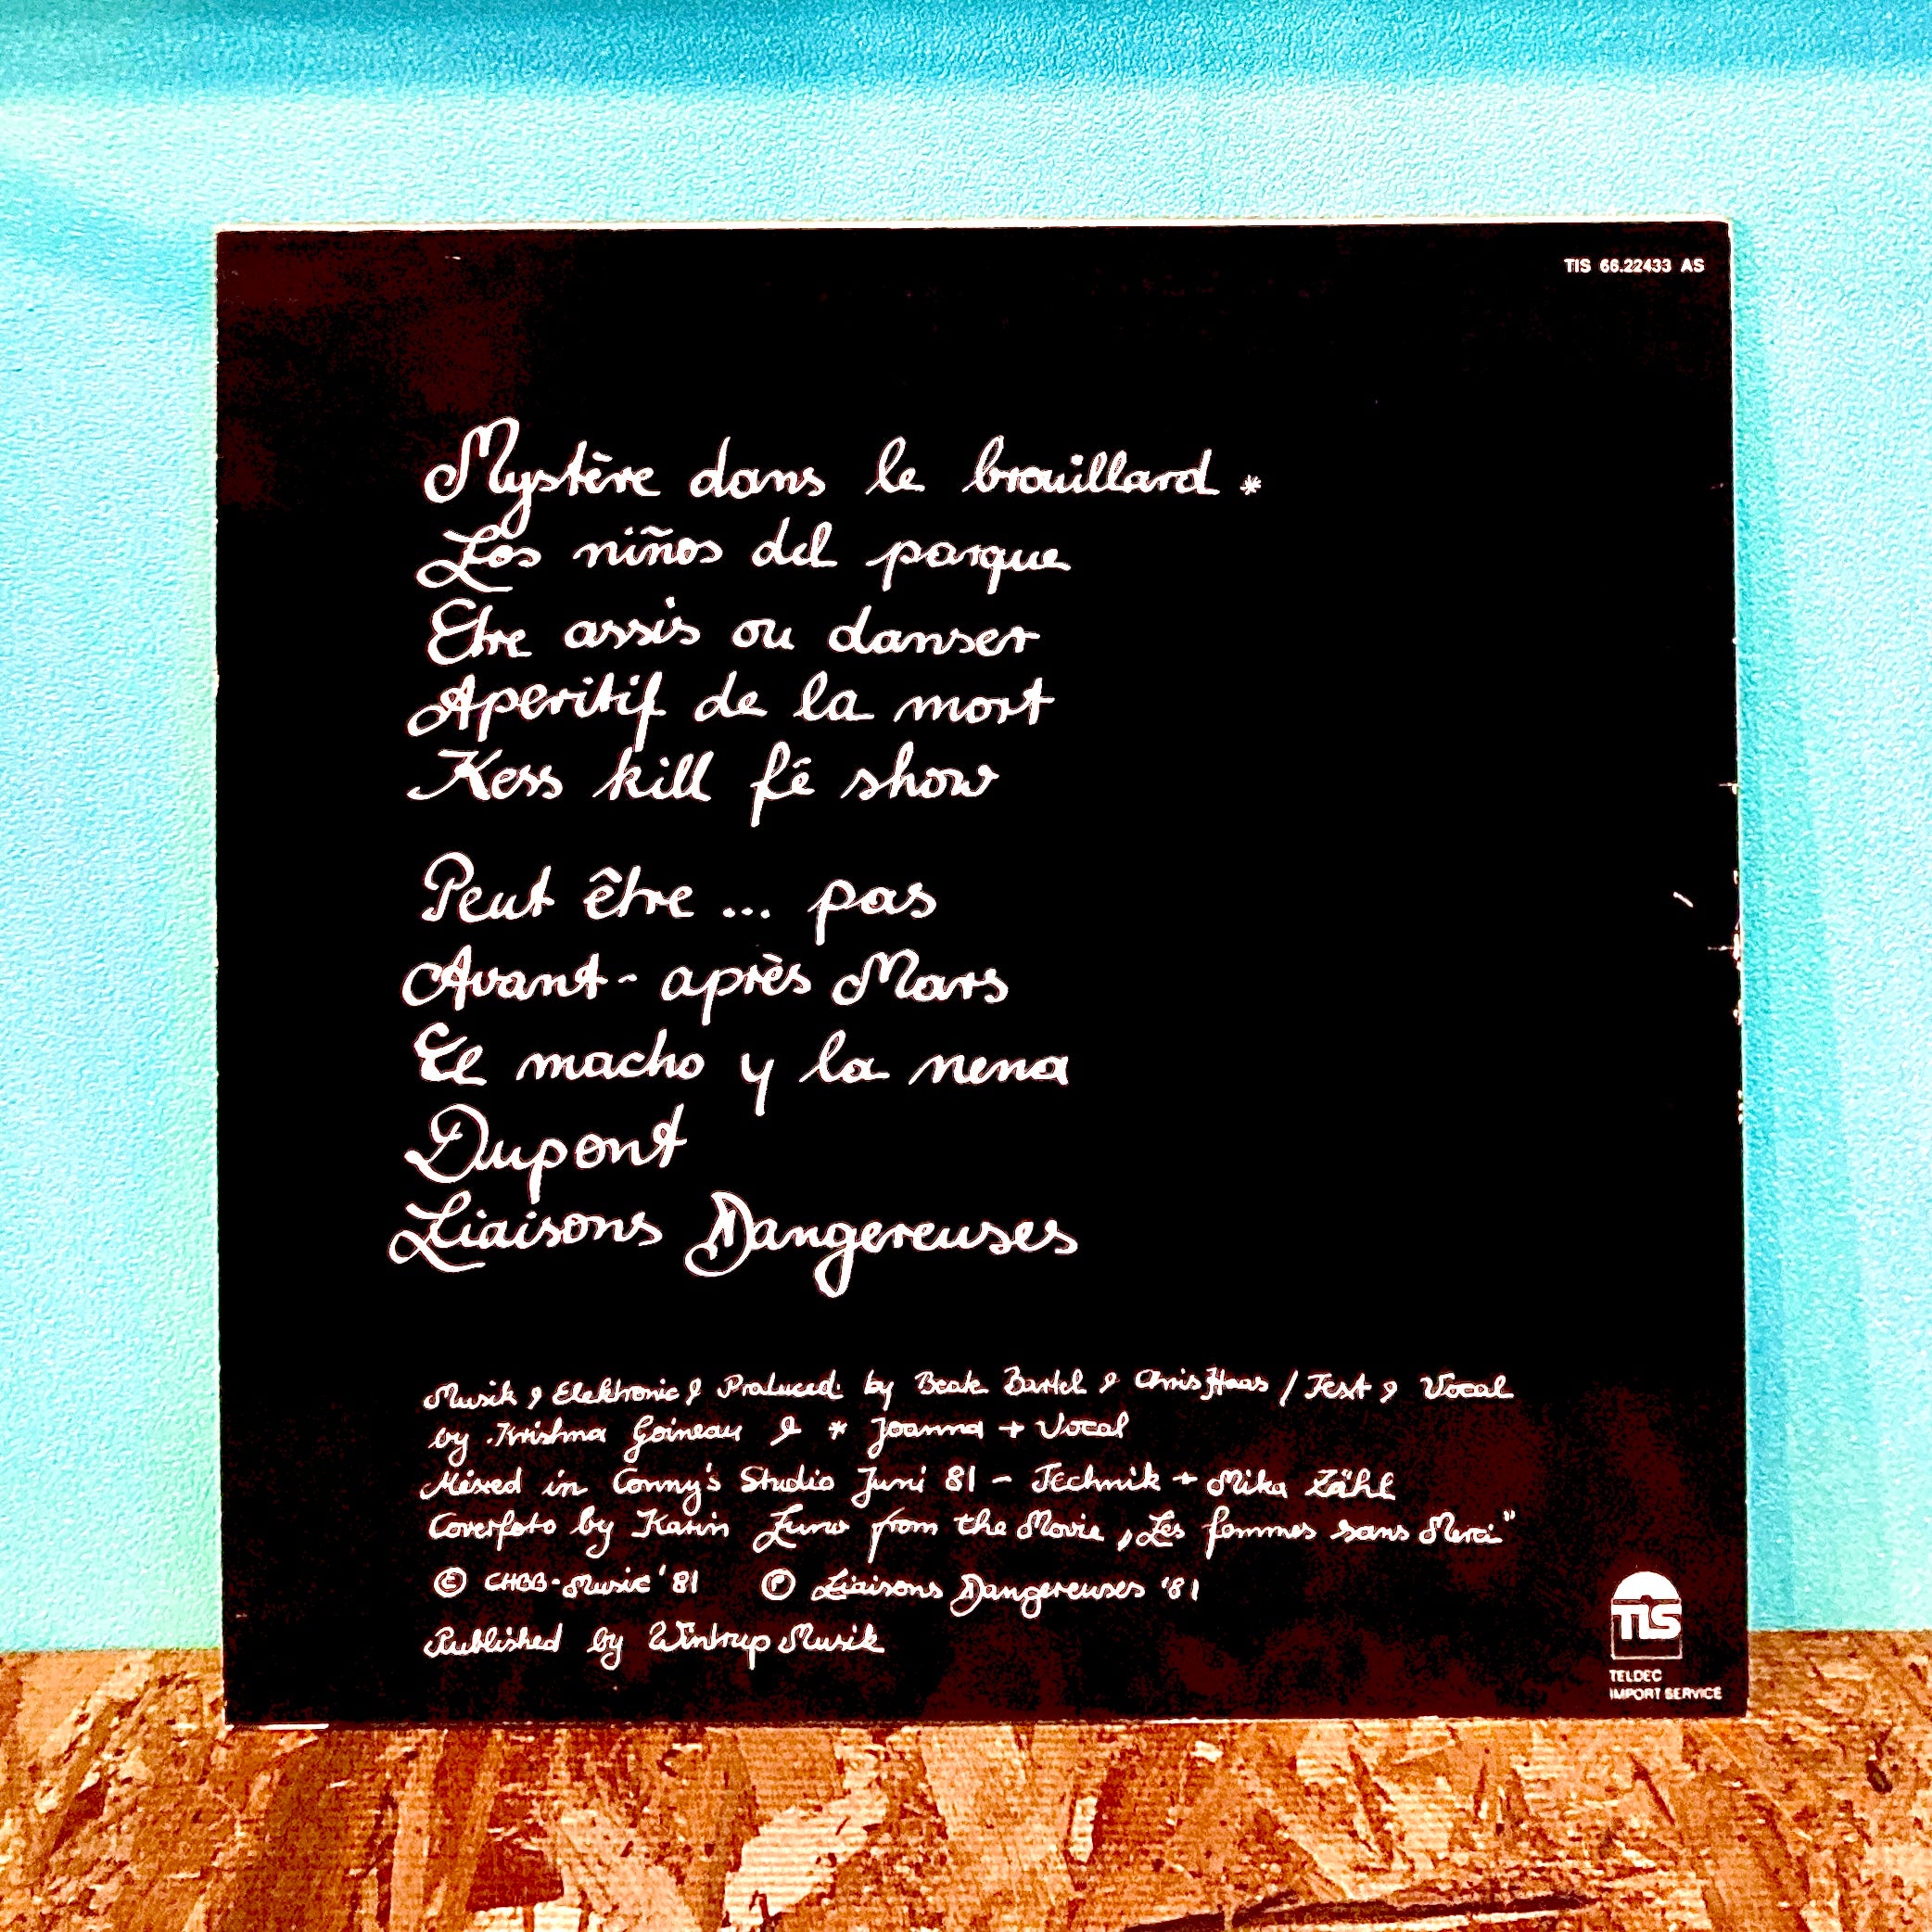 TIS 66.22433 AS
Mystère dans le brouillard *
Los niños del parque
Etre assis ou danser
Aperitif de la mort
Kess kill fê show
Peut être ... pas
Avant- après Mars
El macho y la nena
Dupont
Liaisons Dangereuses
Musik & Elektronic & Produced by Beate Bartel & Chris Haas / Text & Vocal
by Krishna Goineau & * Joanna + Vocal
Mixed in Conny's Studio Juni 81 - Technik + Mika Zähl
Coverfoto by Karin Luner from the Movie „Les femmes sans Merci"
© CHBB-Music '81 ℗ Liaisons Dangereuses '81
Published by Wintrup Musik
TIS
TELDEC
IMPORT SERVICE